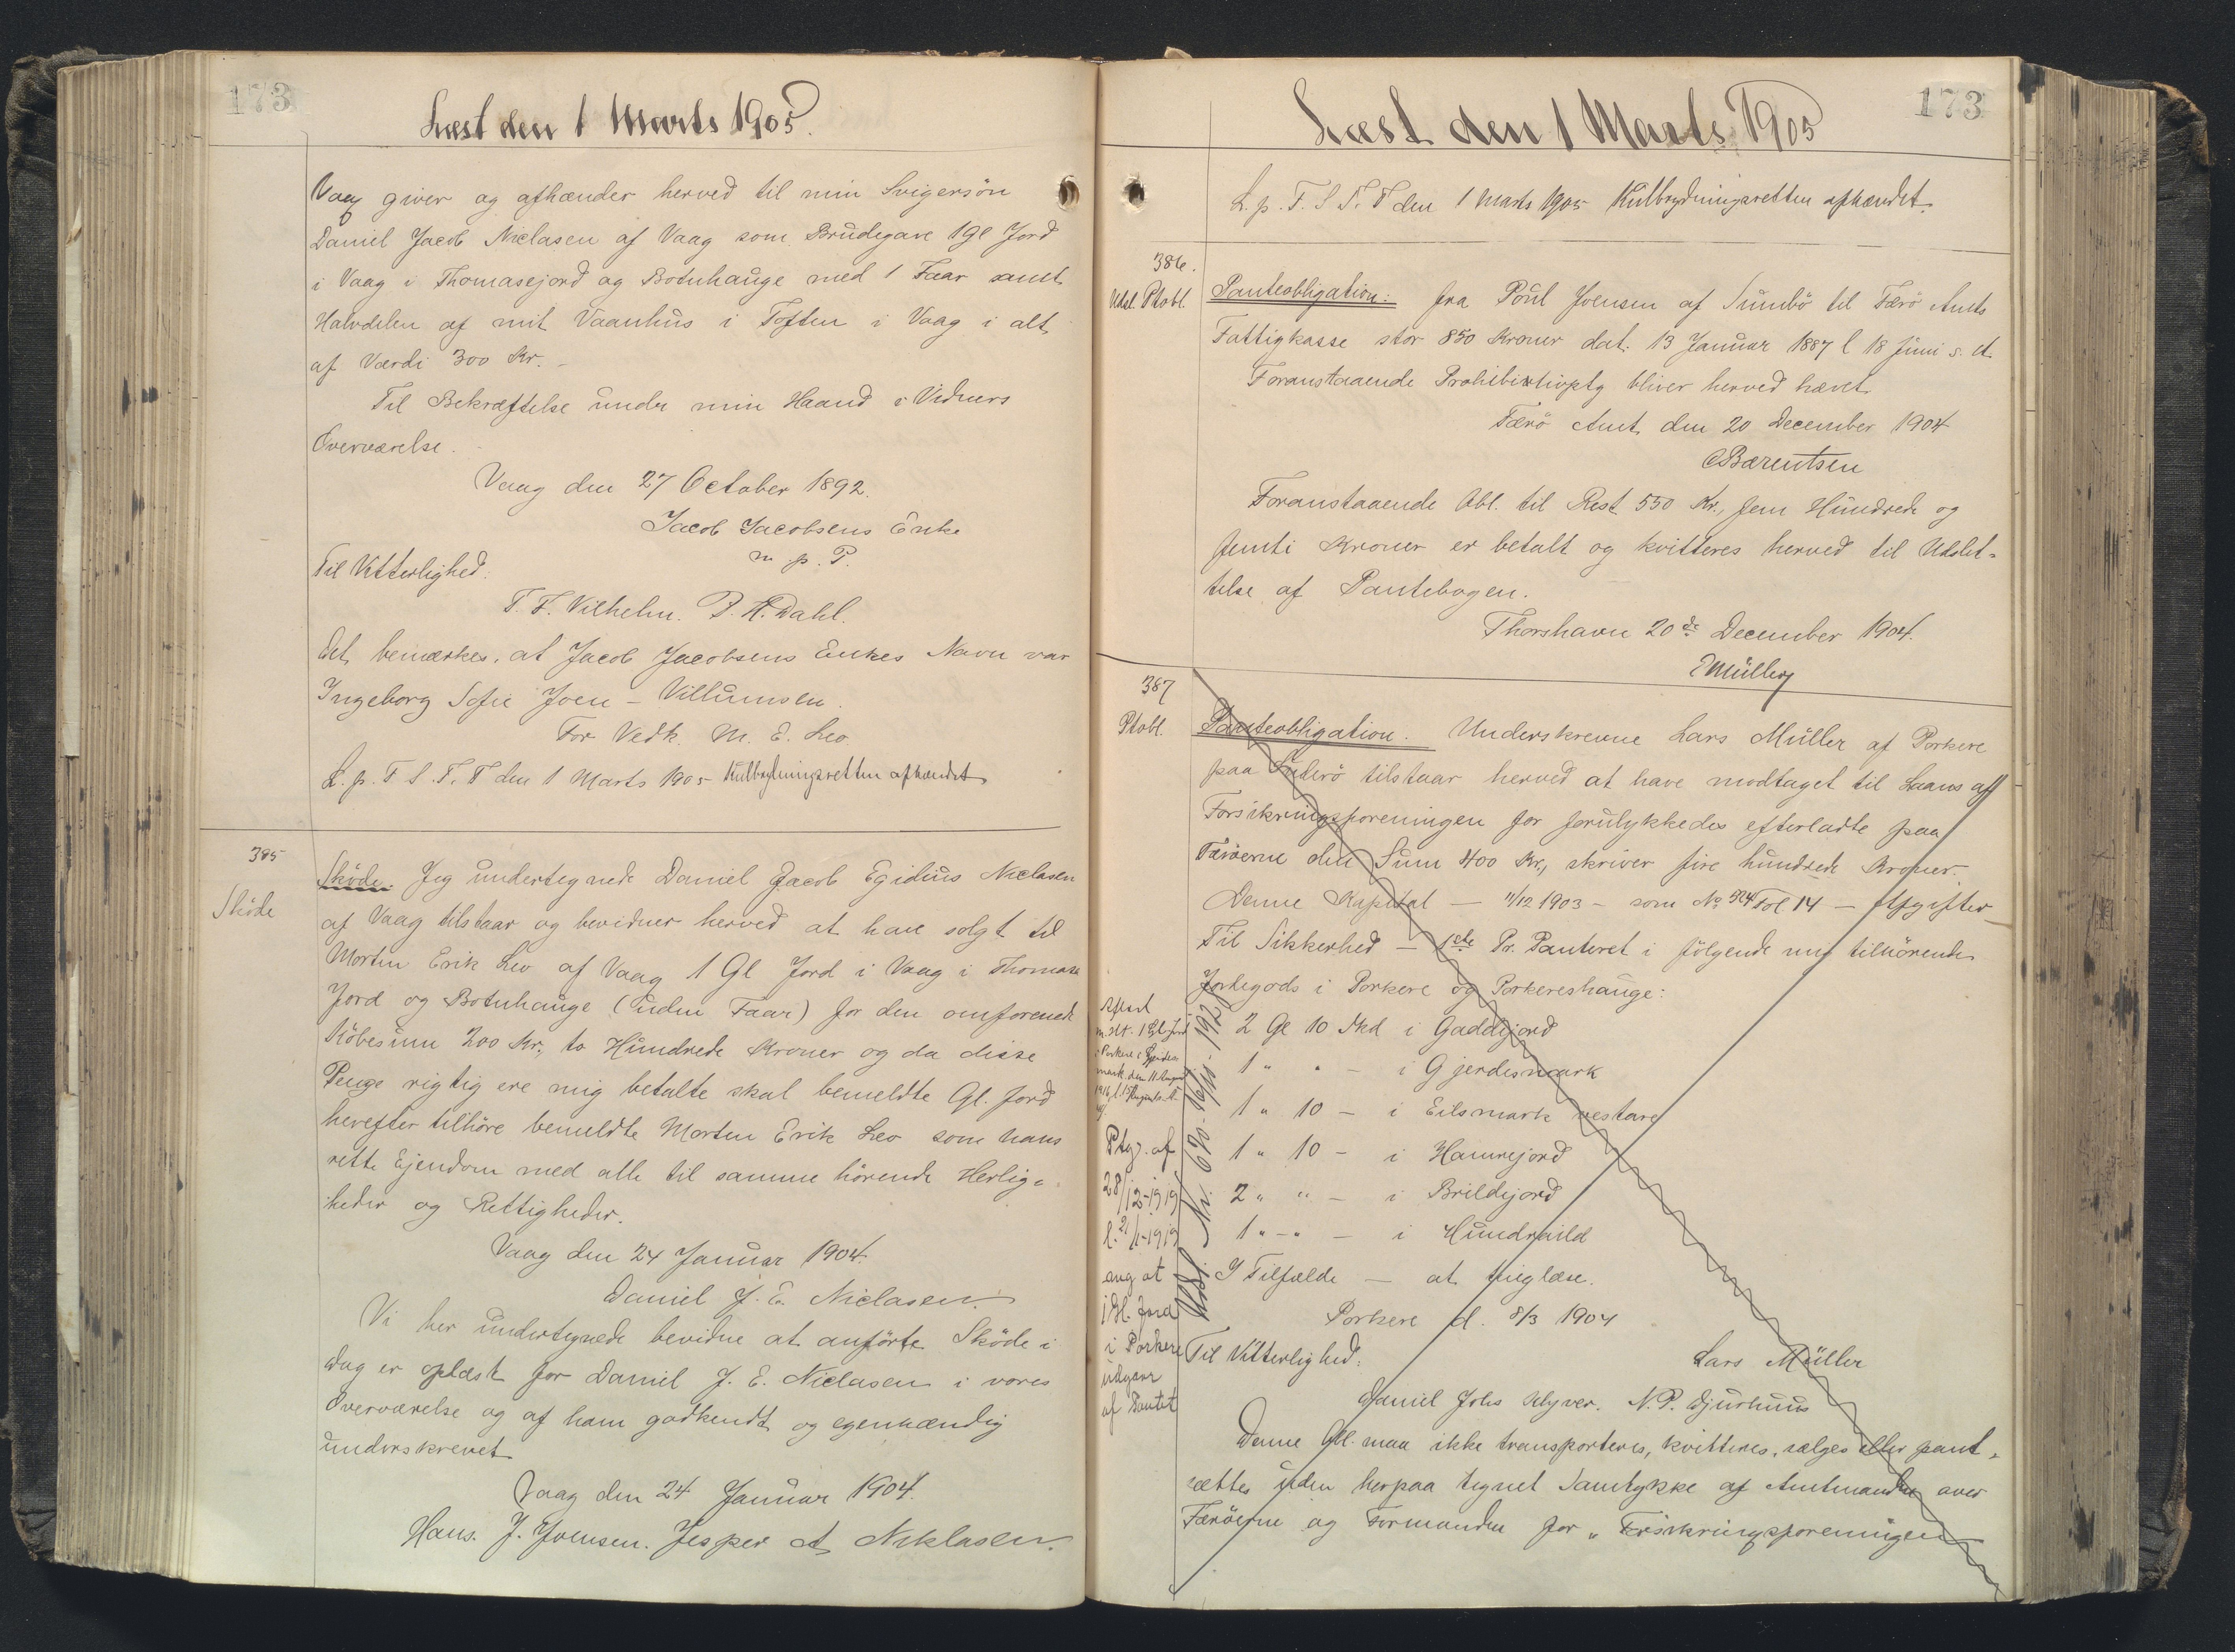 173
Læst den 1 Marts 1905.
Vaag giver og afhænder herved til min Svigersön
Daniel Jacob Niclasen af Vaag som Brudegave 1 Gl Jord
i Vaag i Thomasejord og Botnhauge med 1 Faar samt
Halvdelen af mit Vaanhus i Toften i Vaag i alt
af Værdi 300 Kr. –
Til Bekræftelse under min Haand i Vidners
Overværelse.
Vaag den 27 October 1892.
Jacob Jacobsens Enke
m. p. P.
Til Vitterlighed.
T. F. Vilhelm. P. H. Dahl.
Det bemærkes, at Jacob Jacobsens Enkes Navn var
Ingeborg Sofie Joen – Villumsen.
For Vedk. M. E. Leo.
L. p. F. S. T. T den 1 Marts 1905 Kulbrydningsretten afhændet
385
Sköde
Sköde. Jeg undertegnede Daniel Jacob Egidius Niclasen
af Vaag tilstaar og bevidner herved at have solgt til
Morten Erik Leo af Vaag 1 Gl Jord i Vaag i Thomase
Jord og Botnhauge (uden Faar) for den omforenede
Köbesum 200 Kr., to Hundrede Kroner og da disse
Penge rigtig ere mig betalte skal bemeldte Gl. Jord
herefter tilhöre bemeldte Morten Erik Leo som hans
rette Ejendom med alle til samme hörende Herlig-
heder og Rettigheder.
Vaag den 24 Januar 1904.
Daniel J. E. Niclasen.
Vi her undertegnede bevidne at anförte Sköde i
Dag er oplæst for Daniel J. E. Niclasen i vores
Overværelse og af ham godkendt og egenhændig
underskrevet
Vaag den 24 Januar 1904.
Hans. J. Joensen. Jesper A Niklasen.
173
Læst den 1 Marts 1905
L. p. F. S T. T den 1 Marts 1905 Kulbrydningsretten afhændet.
386.
Udsl. Ptobl.
Panteobligation: fra Poul Joensen af Sumbö til Færö Amts
Fattigkasse stor 850 Kroner dat. 13 Januar 1887 l 18 Juni s. A.
Foranstaaende Prohibitivptg bliver herved hævet.
Færö Amt, den 20 December 1904
CBærentsen
Foranstaaende Obl. til Rest 550 Kr., fem Hundrede og
femti Kroner er betalt og kvitteres herved til Udslet-
telse af Pantebogen.
Thorshavn 20de December 1904.
EMüller
387
Ptobl.
Panteobligation. Underskrevne Lars Müller af Porkere
paa Suderö tilstaar herved at have modtaget til Laans af
Forsikringsforeningen for forulykkedes efterladte paa
Færöerne den Sum 400 Kr., skriver fire hundrede Kroner.
Denne Kapital – 11/12 1903 – som No 324 Fol 14 – Afgifter –
Til Sikkerhed – 1ste Pr. Panteret i fölgende mig tilhörende
Jordegods i Porkere og Porkereshauge:
2 Gl 10 Skd i Gaddejord
1 " " – i Gjerdesmark
1 " 10 – i Eilsmark vestare
1 " 10 – i Hamrejord
2 " " – i Brildejord
1 " – " – i Hundrhild
I Tilfælde – at tinglæse.
Porkere d. 8/3 1904
Til Vitterlighed:
Lars Müller
Daniel Johs Klyver. N. P. Djurhuus
Denne Obl. maa ikke transporteres, kvitteres, sælges eller pant-
sættes uden herpaa tegnet Samtykke af Amtmanden over
Færöerne og Formanden for „Forsikringsforeningen
1 Gl. Jord
i Porkere i Gjerdes
mark. den 11 August
1916
Ptg. af
28/12-1919
l. 2/1-1919
ang at
1 Gl. Jord
i Porkere
udgaar
af Pantet
Udsl.